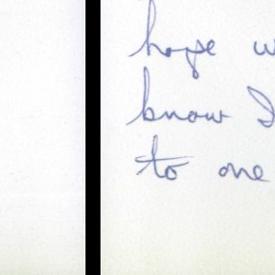 hope w
know I
to one